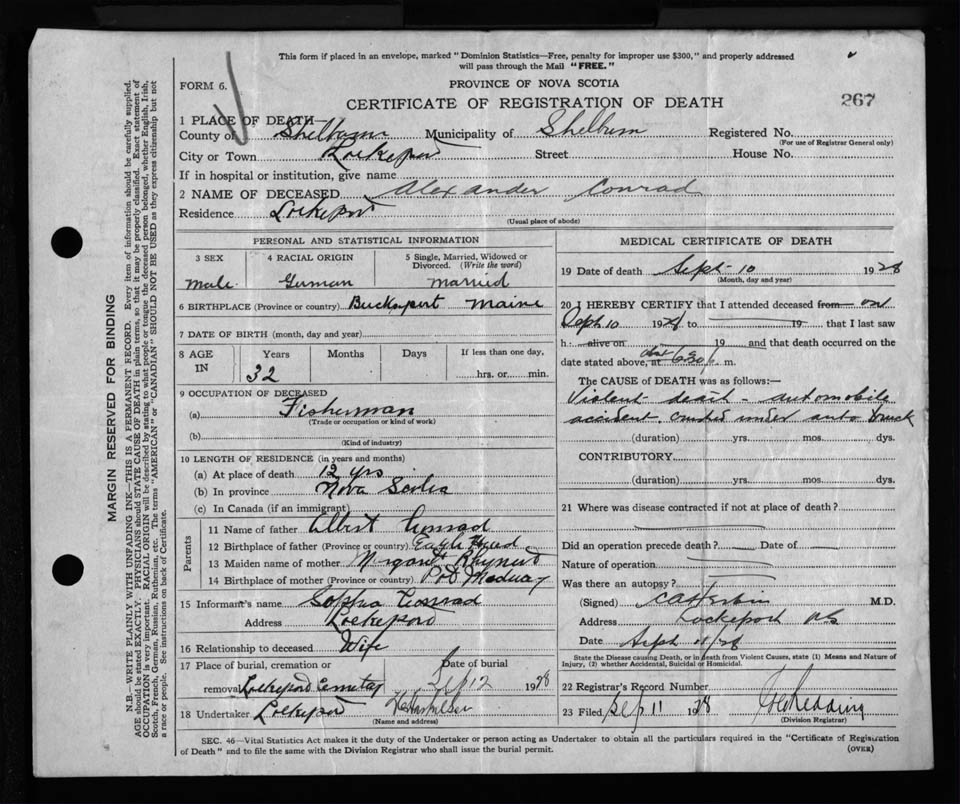 This form if placed in an envelope, marked "Dominion Statistics—Free, penalty for improper use $300," and properly addressed
will pass through the Mail "FREE."
FORM 6.
PROVINCE OF NOVA SCOTIA
CERTIFICATE OF REGISTRATION OF DEATH
267
1 PLACE OF DEATH—
County of Shelburne Municipality of Shelburn Registered No.
(For use of Registrar General only)
City or Town Lockeport Street House No.
If in hospital or institution, give name
2 NAME OF DECEASED Alexander Conrad
Residence Lockeport
(Usual place of abode)
PERSONAL AND STATISTICAL INFORMATION
3 SEX 4 RACIAL ORIGIN 5 Single, Married, Widowed or
Divorced. (Write the word)
Male German Married
6 BIRTHPLACE (Province or country) Bucksport Maine
7 DATE OF BIRTH (month, day and year)
8 AGE Years Months Days If less than one day,
IN 32 hrs. or min.
9 OCCUPATION OF DECEASED
(a) Fisherman
(Trade or occupation or kind of work)
(b)
(Kind of industry)
10 LENGTH OF RESIDENCE (in years and months)
(a) At place of death 12 yrs
(b) In province Nova Scotia
(c) In Canada (if an immigrant)
Parents
11 Name of father Elbert Conrad
12 Birthplace of father (Province or country) Eagle Head
13 Maiden name of mother Margaret Rhynard
14 Birthplace of mother (Province or country) Port Medway
15 Informant's name Sophia Conrad
Address Lockeport
16 Relationship to deceased Wife
17 Place of burial, cremation or Date of burial
removal Lockeport Cemetay Sep 12 1928
18 Undertaker Lockeport
(Name and address)
MEDICAL CERTIFICATE OF DEATH
19 Date of death Sept 10 1928
(Month, day and year)
20 I HEREBY CERTIFY that I attended deceased from on
Sept 10 1928 to 19 that I last saw
h alive on 19 and that death occurred on the
date stated above, at 6:30 p. m.
The CAUSE OF DEATH was as follows:—
Violent death - automobile
accident, crushed under auto truck
(duration) yrs. mos. dys.
CONTRIBUTORY
(duration) yrs. mos. dys.
21 Where was disease contracted if not at place of death?
Did an operation precede death? Date of
Nature of operation
Was there an autopsy?
(Signed) M.D.
Address Lockeport NS
Date Sept 11/28
State the Disease causing Death, or in death from Violent Causes, state (1) Means and Nature of
Injury, (2) whether Accidental, Suicidal or Homicidal.
22 Registrar's Record Number
23 Filed Sep 11 1928 Redding
(Division Registrar)
SEC. 46—Vital Statistics Act makes it the duty of the Undertaker or person acting as Undertaker to obtain all the particulars required in the "Certificate of Registration
of Death" and to file the same with the Division Registrar who shall issue the burial permit.
(OVER)
MARGIN RESERVED FOR BINDING
N.B.—WRITE PLAINLY WITH UNFADING INK—THIS IS A PERMANENT RECORD. Every item of information should be carefully supplied.
AGE should be stated EXACTLY. PHYSICIANS should STATE CAUSE OF DEATH in plain terms, so that it may be properly classified. Exact statement of
OCCUPATION is very important. RACIAL ORIGIN will be described by stating to what people or tongue the deceased person belonged, whether English, Irish,
Scotch, French, German, Russian, Ruthenian, etc. The terms "AMERICAN" or "CANADIAN" SHOULD NOT BE USED as they express citizenship but not
a race or people. See instructions on back of Certificate.